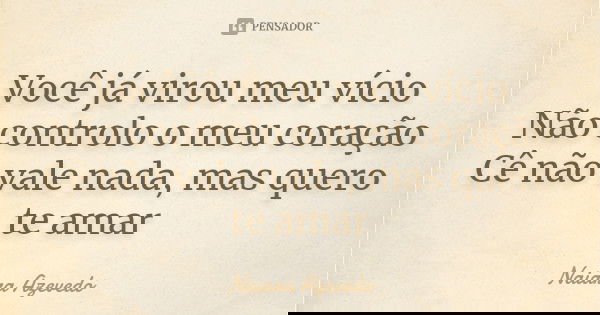 PENSADOR
Você já virou meu vício
Não controlo o meu coração
Cê não vale nada, mas quero
te amar
Naiara Azevedo